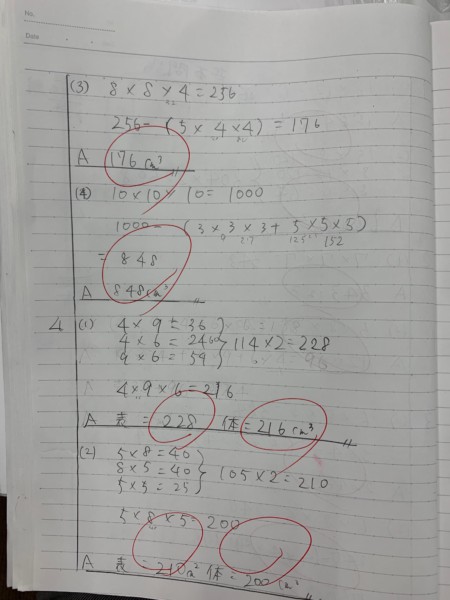 No.
Date
(3) 8 × 8 × 4 = 256
256 - (5 × 4 × 4) = 176
A 176 cm³
(4) 10 × 10 × 10 = 1000
1000 - (3 × 3 × 3 + 5 × 5 × 5)
9 27 125 152
= 848
A 848 cm³
4 (1) 4 × 9 = 36
4 × 6 = 24 } 114 × 2 = 228
9 × 6 = 54
4 × 9 × 6 = 216
A 表 = 228 体 = 216 cm³
(2) 5 × 8 = 40
8 × 5 = 40 } 105 × 2 = 210
5 × 5 = 25
5 × 8 × 5 = 200
A 表 = 210 cm² 体 = 200 cm³